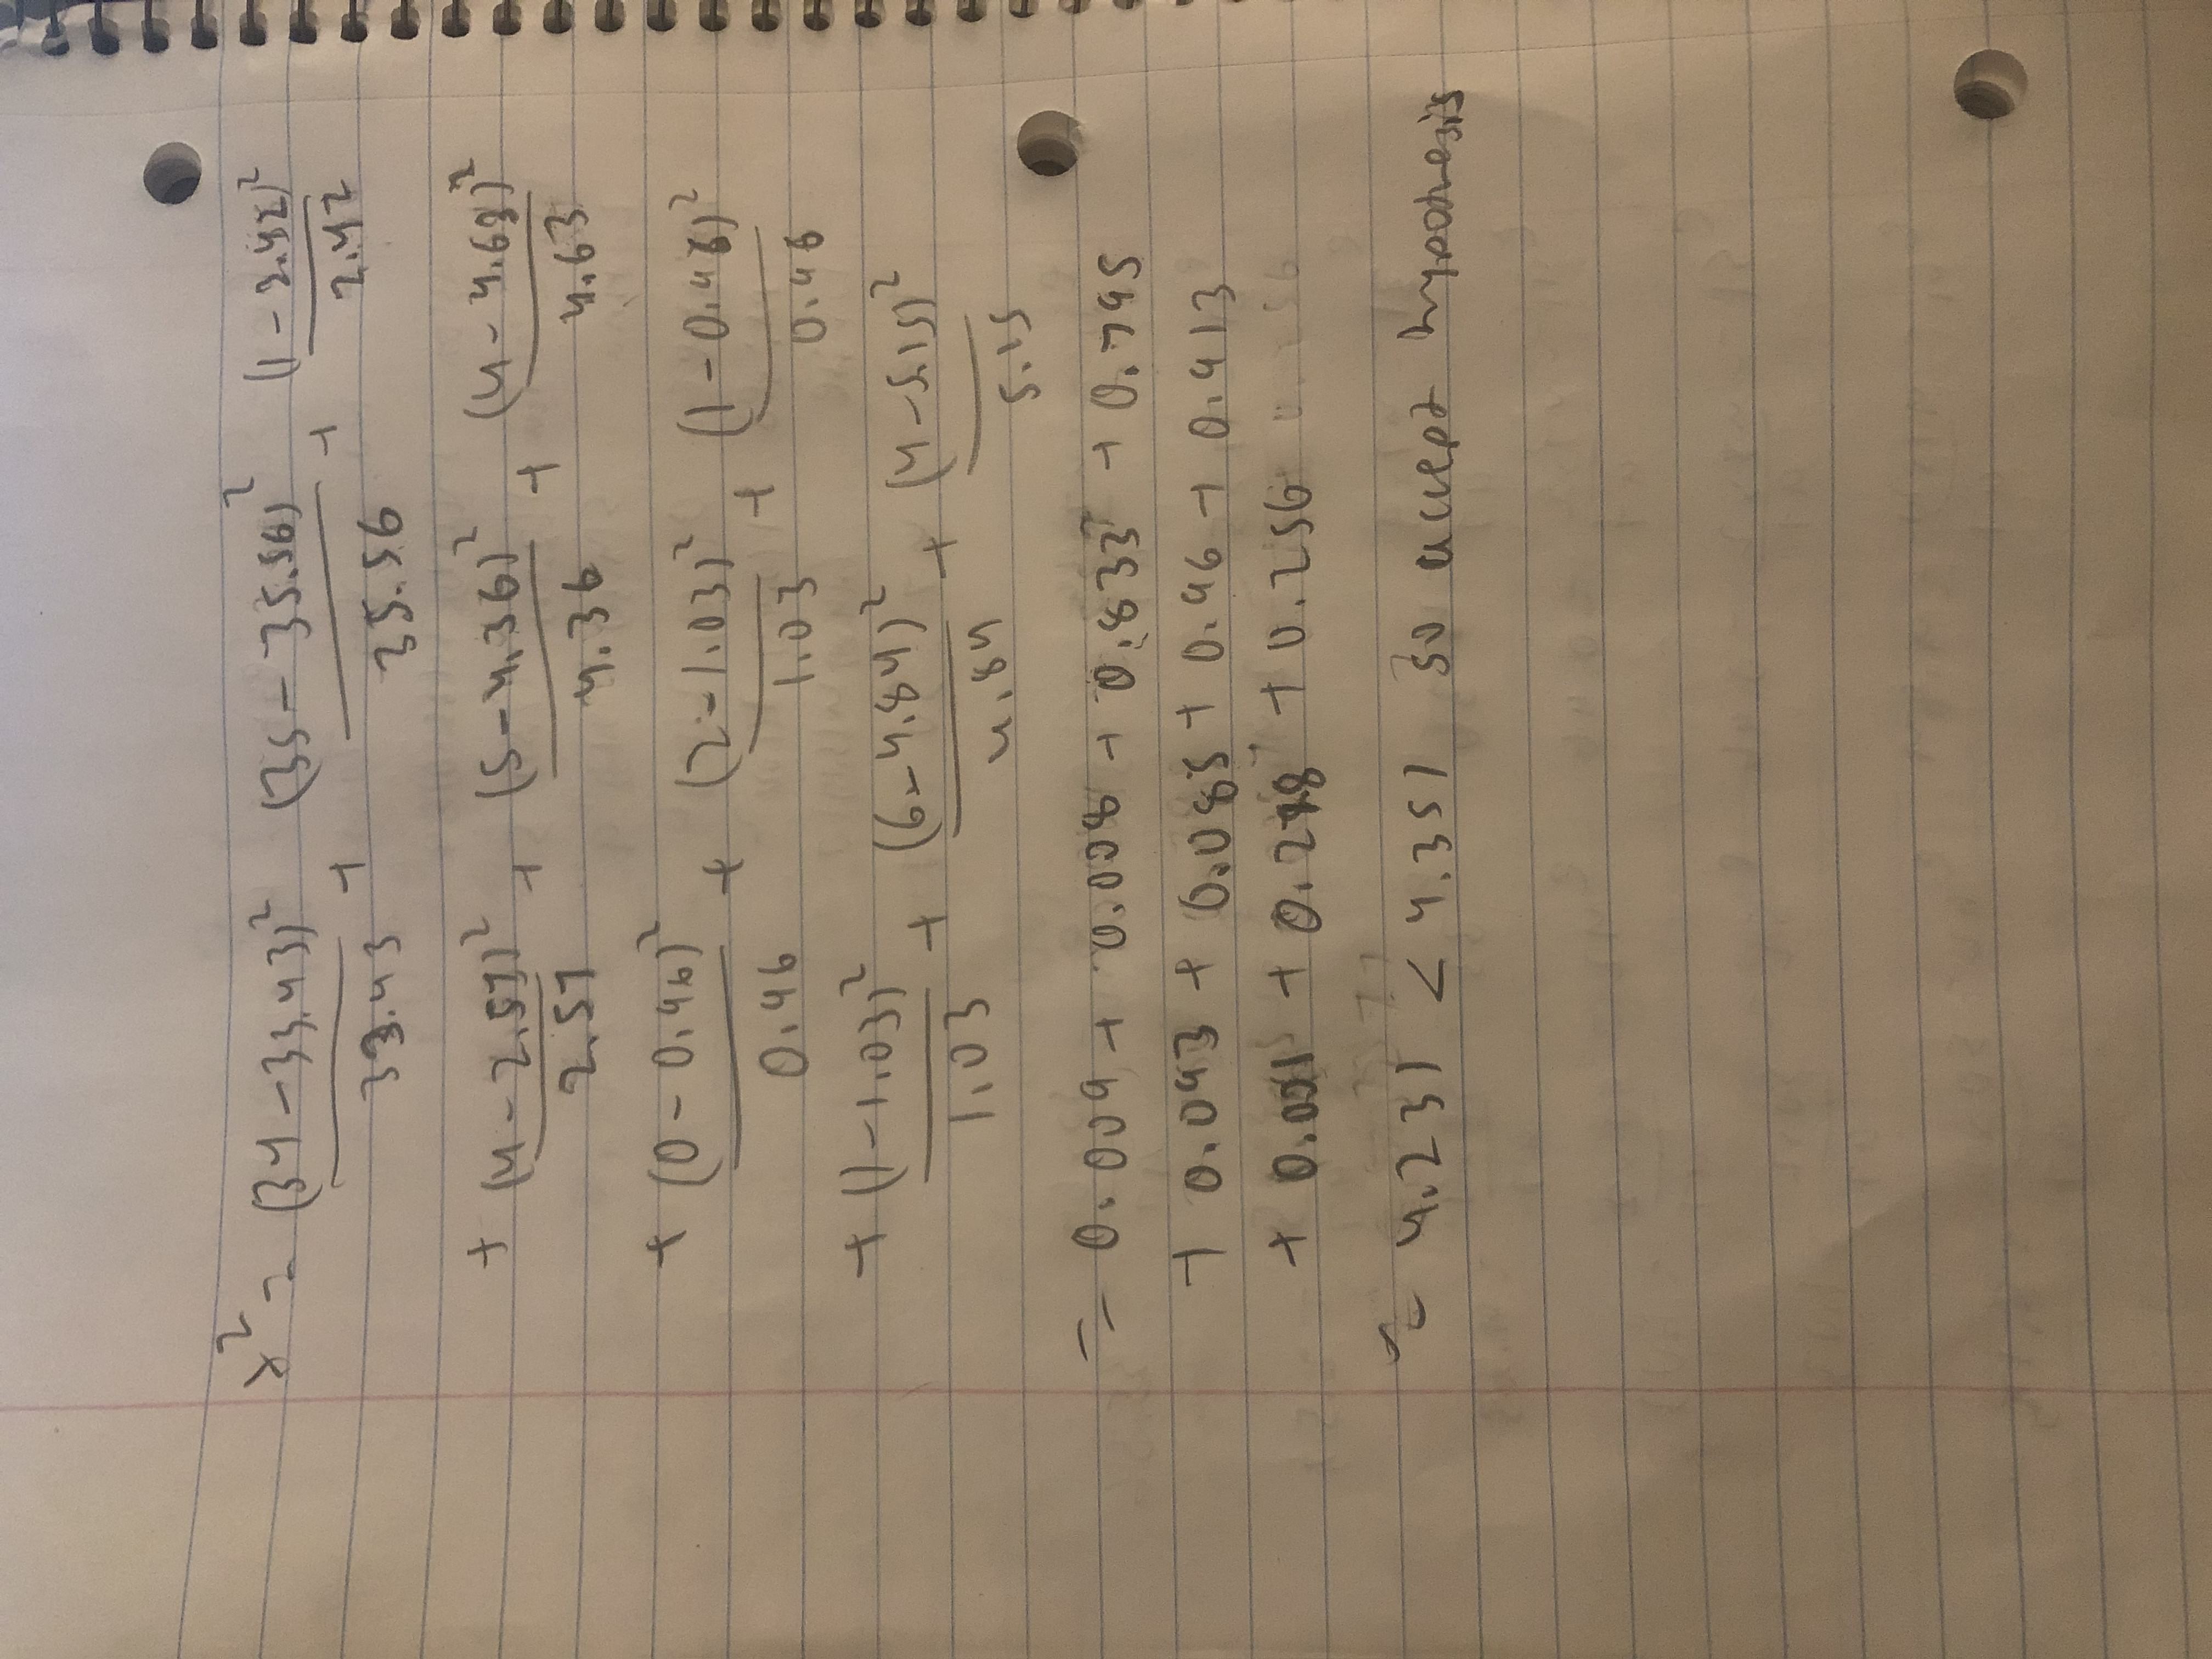 x² = (34 - 33.43)²/33.43 + (35 - 35.56)²/35.56 + (1 - 2.42)²/2.42
+ (4 - 2.57)²/2.57 + (5 - 4.36)²/4.36 + (4 - 4.63)²/4.63
+ (0 - 0.46)²/0.46 + (2 - 1.03)²/1.03 + (1 - 0.46)²/0.46
+ (1 - 1.03)²/1.03 + (6 - 4.84)²/4.84 + (4 - 5.15)²/5.15
= 0.009 + 0.008 + 0.833 + 0.795
+ 0.093 + 0.085 + 0.46 + 0.913
+ 0.001 + 0.278 + 0.256
≈ 4.231 < 4.351 so accept hypothesis